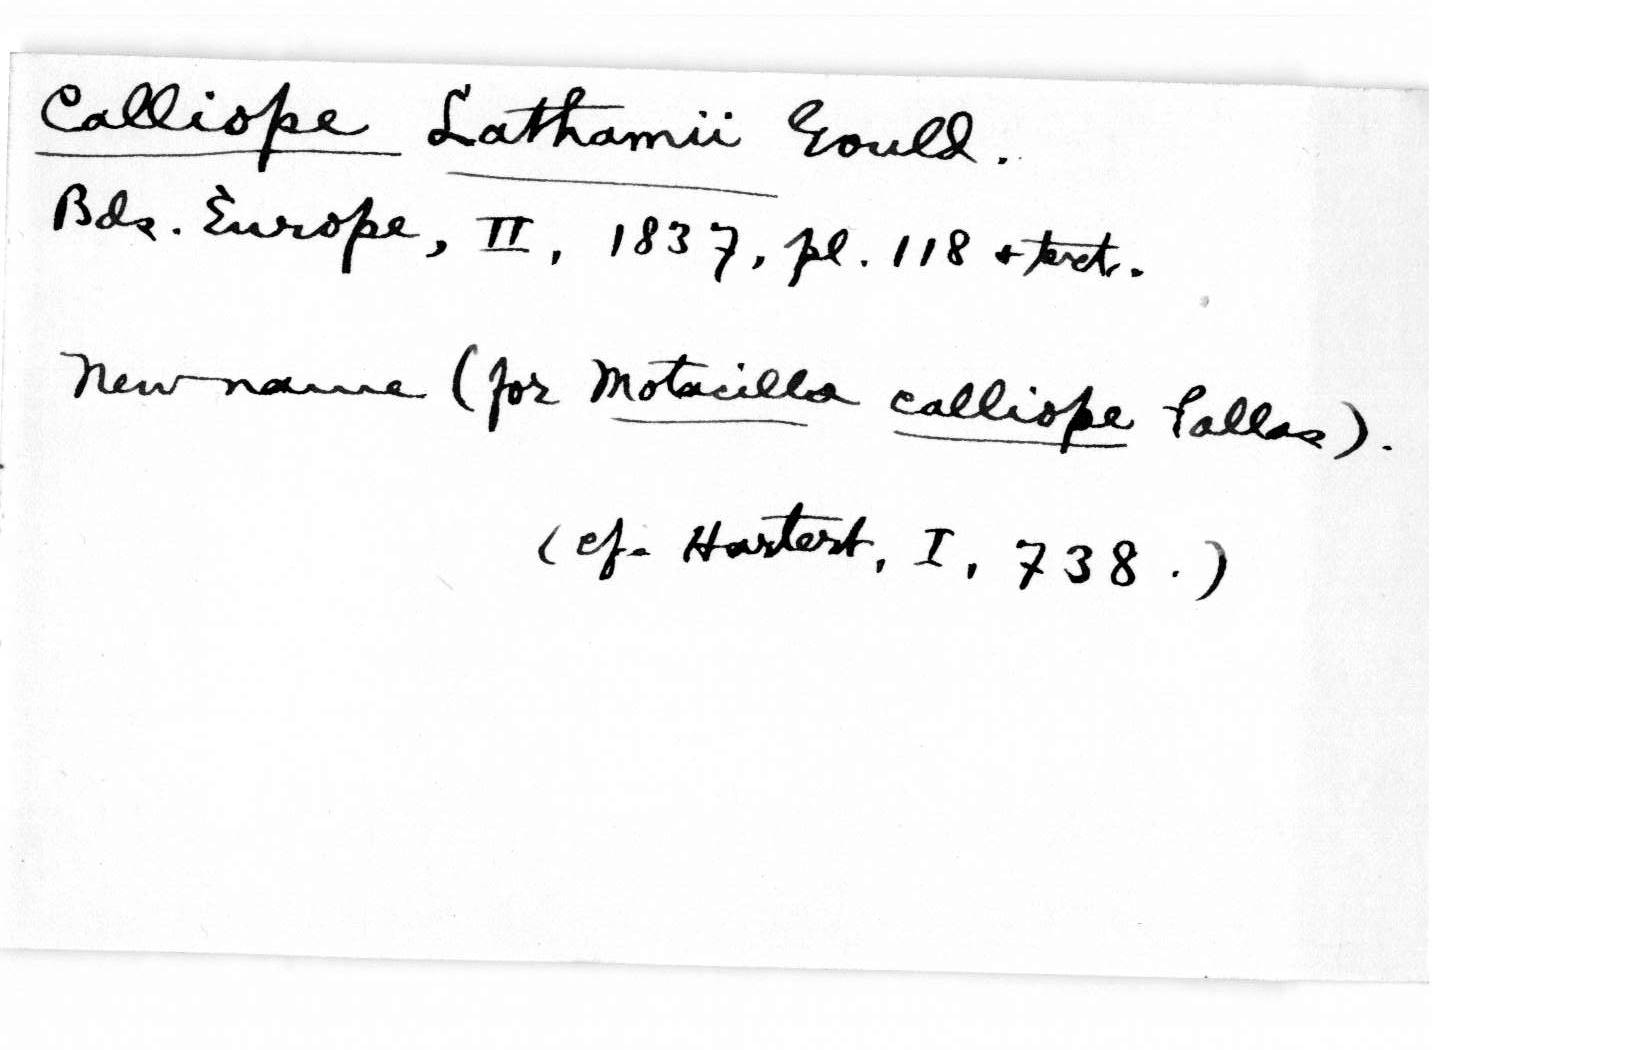 Calliope Lathamii Gould.
Bds. Europe, II, 1837, pl. 118 + text.
New name (for Motacilla calliope Pallas).
(cf. Hartert, I, 738.)